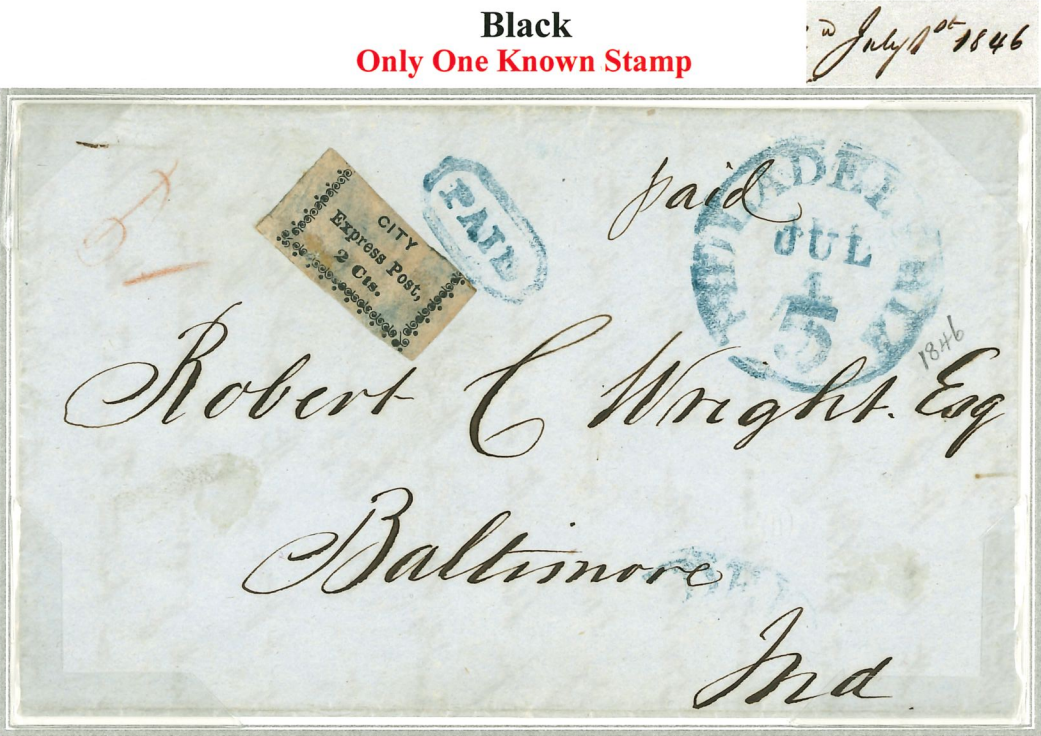 Black
Only One Known Stamp
July 1st 1846
CITY
Express Post,
2 Cts.
PAID
paid
PHILADELPHIA
JUL
1
5
1846
Robert C Wright. Esq
Baltimore
Md